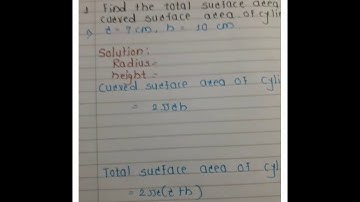 Find the total surface area
curved surface area of cyli
r = 7 cm, h = 10 cm
Solution:
Radius =
height =
Curved surface area of cyli
= 2πrh
Total surface area of cyli
= 2πr(r+h)